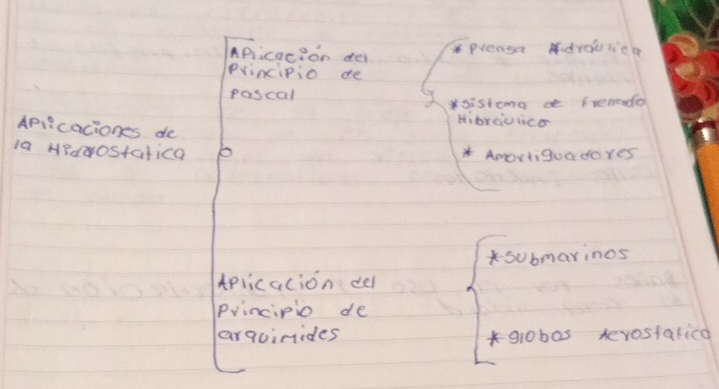 Aplicación del
Principio de
Pascal
* Prensa Hidraúlica
* Sistema de Frenado
Hibraúlico
* Amortiguadores
Aplicaciones de
la Hidrostatica
Aplicación del
Principio de
arquimides
* Submarinos
* globos Aerostatico